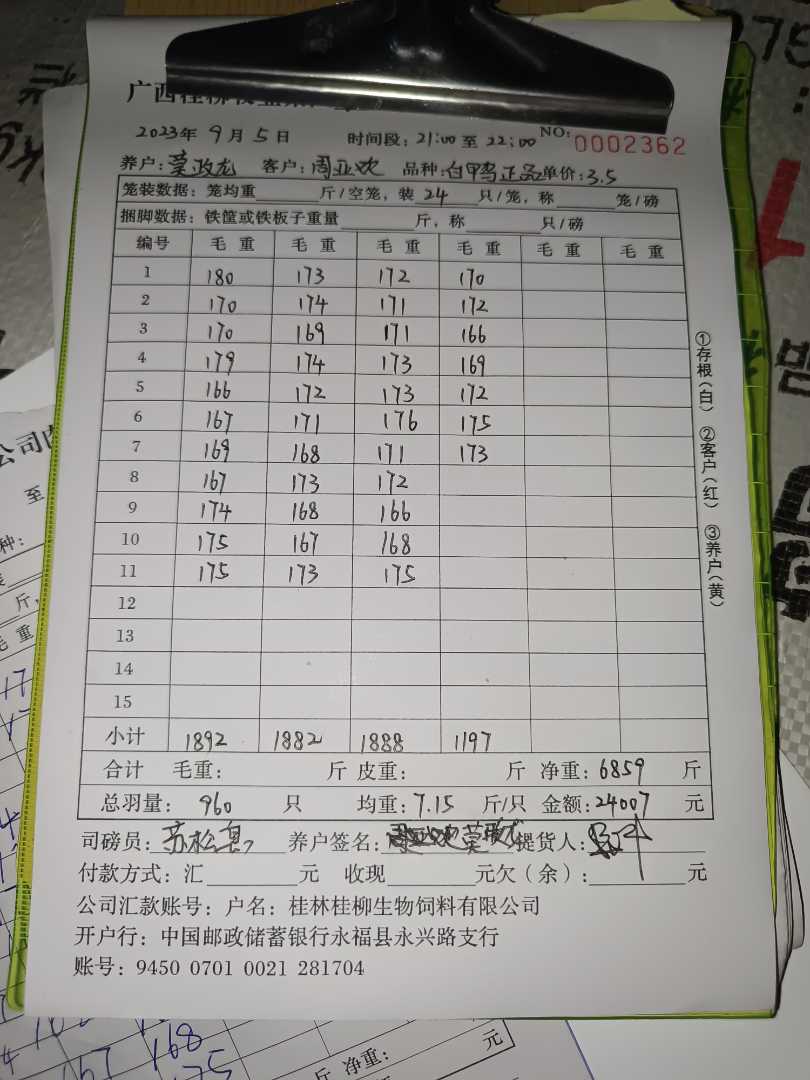 2023年 9月 5日 时间段: 21:00 至 22:00 NO: 0002362
养户: 莫政龙 客户: 周亚欢 品种: 白甲鸭正品 单价: 3.5
笼装数据: 笼均重 斤/空笼, 装 24 只/笼, 称 笼/磅
捆脚数据: 铁筐或铁板子重量 斤, 称 只/磅
编号 毛重 毛重 毛重 毛重 毛重 毛重
1 180 173 172 170
2 170 174 171 172
3 170 169 171 166
4 179 174 173 169
5 166 172 173 172
6 167 171 176 175
7 169 168 171 173
8 167 173 172
9 174 168 166
10 175 167 168
11 175 173 175
12
13
14
15
小计 1892 1882 1888 1197
合计 毛重: 斤 皮重: 斤 净重: 6859 斤
总羽量: 960 只 均重: 7.15 斤/只 金额: 24007 元
司磅员: 养户签名: 提货人:
付款方式: 汇 元 收现 元 欠(余): 元
公司汇款账号: 户名: 桂林桂柳生物饲料有限公司
开户行: 中国邮政储蓄银行永福县永兴路支行
账号: 9450 0701 0021 281704
①存根(白) ②客户(红) ③养户(黄)
公司
至
种:
斤,
毛重
168
净重:
元